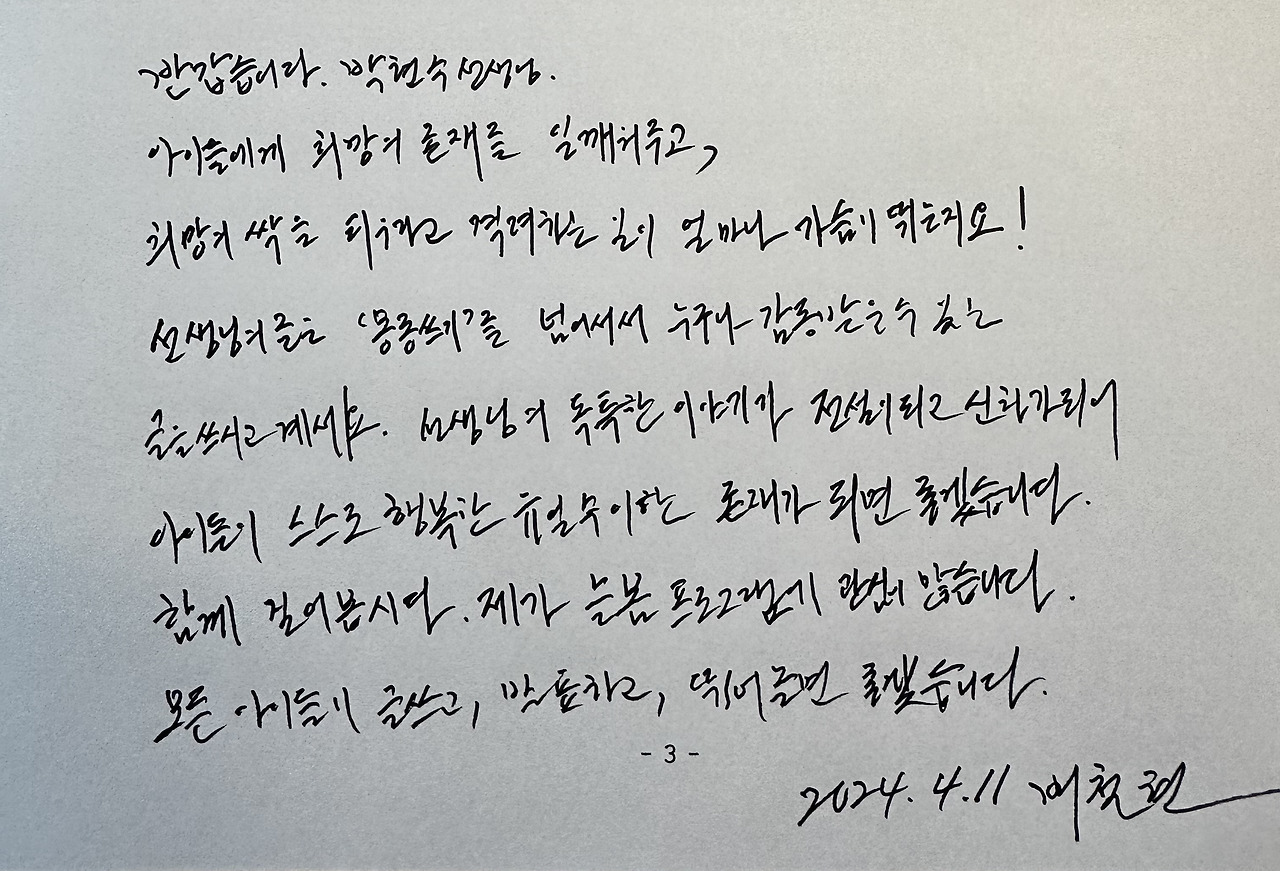 반갑습니다. 박현수 선생님.
아이들에게 희망의 존재를 일깨워주고,
희망의 싹을 틔우라고 격려하는 일이 얼마나 가슴이 뛰는지요!
선생님의 글은 '몽롱쓰기'를 넘어서서 누구나 감동받을 수 있는
글을 쓰시고 계세요. 선생님의 독특한 이야기가 전설이 되고 신화가 되어
아이들이 스스로 행복한 유일무이한 존재가 되면 좋겠습니다.
함께 걸어봅시다. 제가 늘봄 프로그램에 관심이 많습니다.
모든 아이들이 글쓰고, 발표하고, 뛰어놀면 좋겠습니다.
- 3 -
2024. 4. 11 배철현